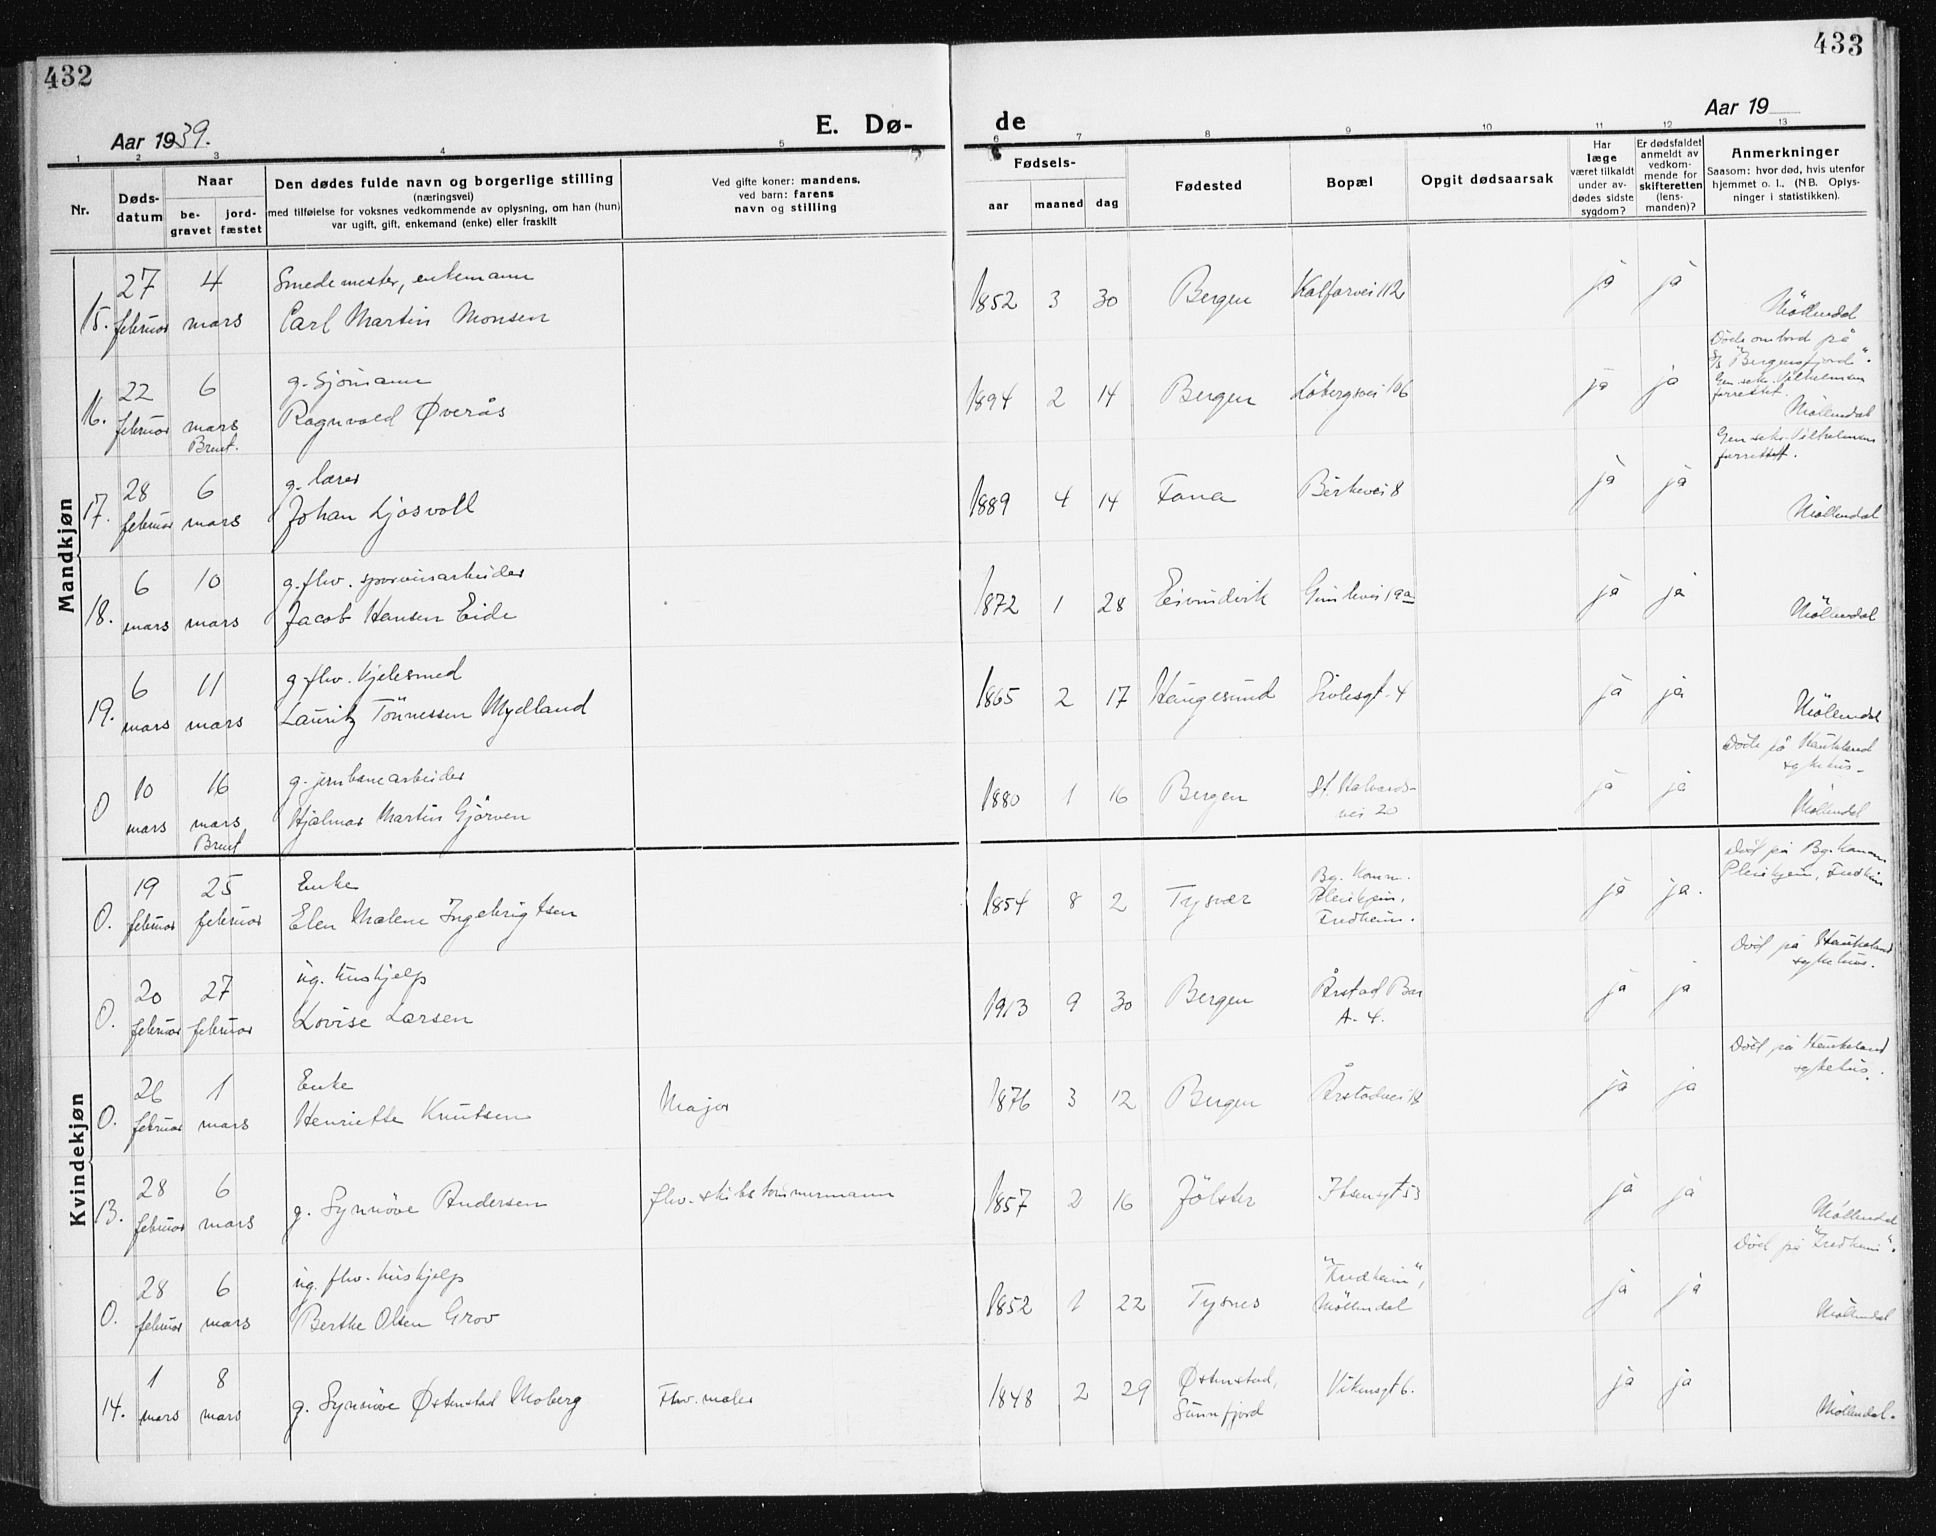 432
433
Aar 1939.
E. Dø-
de
Aar 19
1 2 3 4 5 6 7 8 9 10 11 12 13
Nr.
Døds-
datum
Naar
be-
gravet
jord-
fæstet
Den dødes fulde navn og borgerlige stilling
(næringsvei)
med tilføielse for voksnes vedkommende av oplysning, om han (hun)
var ugift, gift, enkemand (enke) eller fraskilt
Ved gifte koner: mandens,
ved barn: farens
navn og stilling
Fødsels-
aar maaned dag
Fødested
Bopæl
Opgit dødsaarsak
Har
læge
været tilkaldt
under av-
dødes sidste
sygdom?
Er dødsfaldet
anmeldt av
vedkom-
mende for
skifteretten
(lens-
manden)?
Anmerkninger
Saasom: hvor død, hvis utenfor
hjemmet o. l.. (NB. Oplys-
ninger i statistikken).
Mandkjøn
15. 27 februar 4 mars
Smedemester, enkemann
Carl Martin Monsen
1852 3 30 Bergen Kalfarvei 112 ja ja
Møllendal
16. 22 februar 6 mars
Brent.
g. Sjømann
Ragnvald Øverås
1894 2 14 Bergen Løbergsvei 106 ja ja
Døde ombord på
S/S "Bergensfjord".
Gen sekr. Vilhelmsen
forrettet.
Møllendal
17. 28 februar 6 mars
g. lærer
Johan Ljosvoll
1889 4 14 Fana Birkevei 8 ja ja
Gen sekr. Vilhelmsen
forrettet.
Møllendal
18. 6 mars 10 mars
g. fhv. sporveisarbeider
Jacob Hansen Eide
1872 1 28 Eivindvik 19a ja ja
Møllendal
19. 6 mars 11 mars
g. fhv. kjelesmed
Lauritz Tönnessen Mydland
1865 2 17 Haugesund Sivlesgt. 4 ja ja
Møllendal
0 10 mars 16 mars
Brent
g. jernbanearbeider
Hjalmar Martin Gjörven
1880 1 16 Bergen St. Halvards-
vei 20 ja ja
Døde på Haukeland
sykehus.
Møllendal
Kvindekjøn
0. 19 februar 25 februar
Enke
Elen Malene Ingebrigtsen
1854 8 2 Tysvær Bg. Komm.
Pleiehjem,
Fredheim. ja ja.
Död på Bg. Komm.
Pleiehjem, Fredheim
0. 20 februar 27 februar
ug. hushjelp
Lovise Larsen
1913 9 30 Bergen Årstad Bar
A. 4. ja ja
Död på Haukeland
sykehus.
0. 26 februar 1 mars
Enke
Henriette Knutsen
Major
1876 3 12 Bergen Årstadvei 18 ja ja
Död på Haukeland
sykehus.
13. 28 februar 6 mars
g. Synnöve Andersen
fhv. skibstømmermann
1857 2 16 Jölster Ibsensgt 53 ja ja
Møllendal
0. 28 februar 6 mars
ug. fhv. hushjelp
Berthe Olsen Grov
1852 1 22 Tysnes "Fredheim",
Møllendal ja ja
Död på "Fredheim".
Møllendal
14. 1 mars 8 mars
g. Synnöve Østenstad Moberg
Fhv. maler
1848 2 29 Østenstad,
Sunnfjord Vikensgt 6. ja ja
Møllendal.